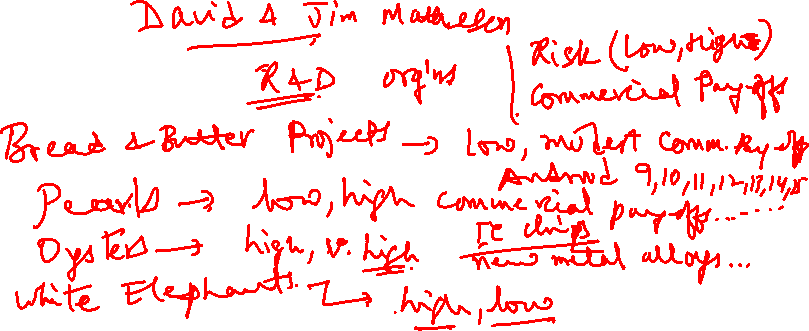 David & Jim Matheson
R&D orgns
Risk (Low, High)
Commercial Pay-offs
Bread & Butter Projects → Low, modest Comm. Pay-off
Android 9,10,11,12,13,14,15
Pearls → low, high commercial pay-offs......
Oysters → high, v. high IC chips
new metal alloys...
White Elephants → high, low